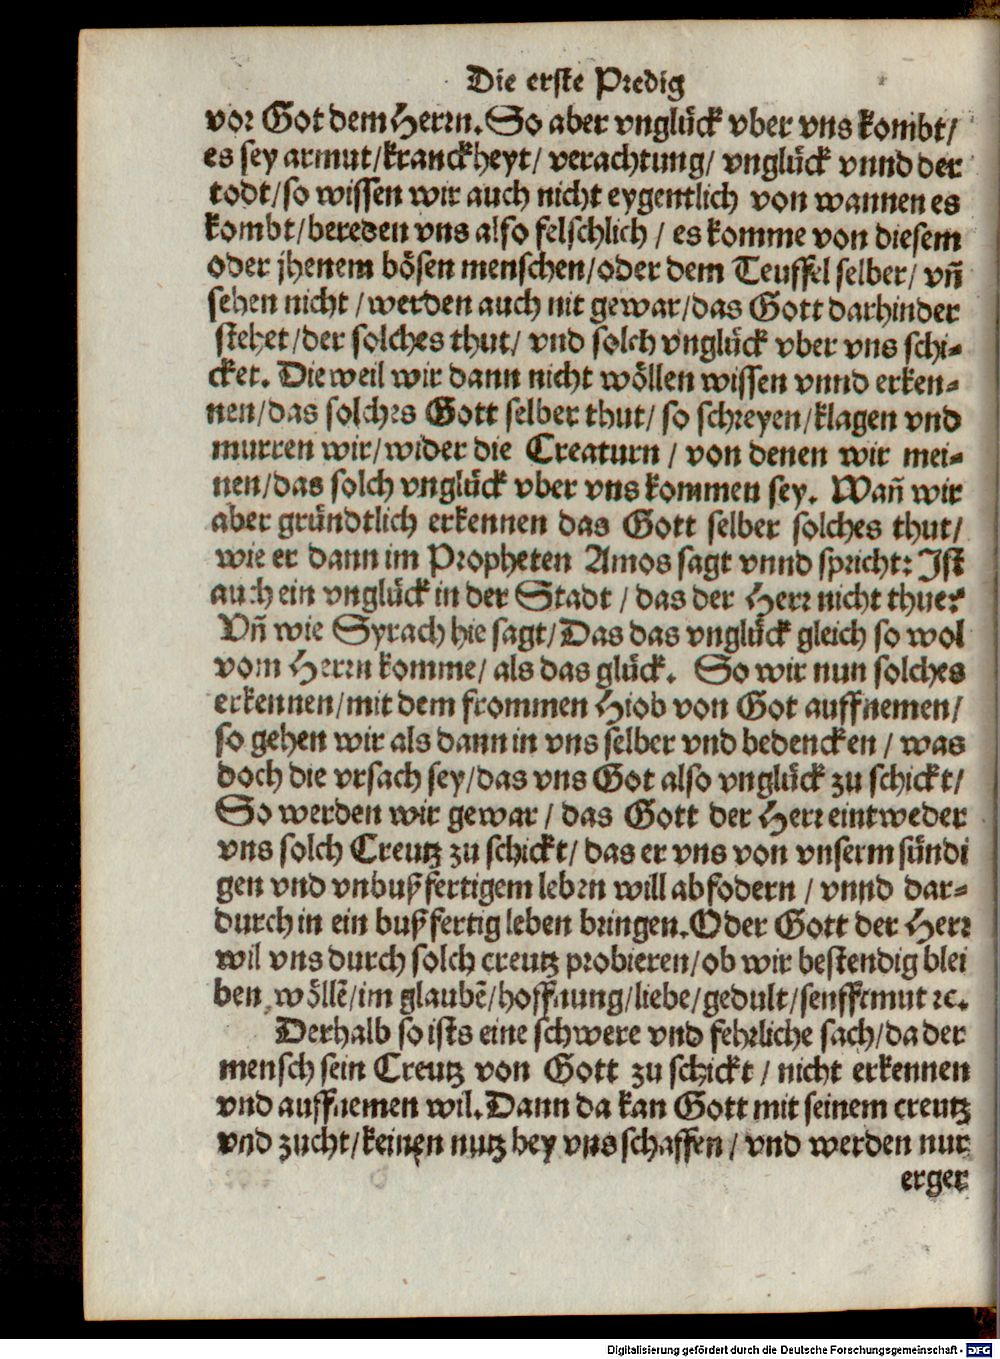 Die erste Predig
vor Got dem Herrn. So aber vnglück vber vns kombt/
es sey armut/kranckheyt/ verachtung/ vnglück vnnd der
todt/so wissen wir auch nicht eygentlich von wannen es
kombt/bereden vns also felschlich / es komme von diesem
oder jhenem bösen menschen/oder dem Teuffel selber/ vñ
sehen nicht /werden auch nit gewar/das Gott darhinder
stehet/der solches thut/ vnd solch vnglück vber vns schi-
cket. Dieweil wir dann nicht wöllen wissen vnnd erken-
nen/das solches Gott selber thut/ so schreyen/klagen vnd
murren wir/wider die Creaturn / von denen wir mei-
nen/das solch vnglück vber vns kommen sey. Wañ wir
aber gründtlich erkennen das Gott selber solches thut/
wie er dann im Propheten Amos sagt vnnd spricht: Ist
auch ein vnglück in der Stadt / das der Herr nicht thue?
Vñ wie Syrach hie sagt/Das das vnglück gleich so wol
vom Herrn komme/ als das glück. So wir nun solches
erkennen/mit dem frommen Hiob von Got auffnemen/
so gehen wir als dann in vns selber vnd bedencken / was
doch die vrsach sey/das vns Got also vnglück zu schickt/
So werden wir gewar / das Gott der Herr eintweder
vns solch Creutz zu schickt/ das er vns von vnserm sündi
gen vnd vnbußfertigem leben will abfodern / vnnd dar-
durch in ein bußfertig leben bringen. Oder Gott der Herr
wil vns durch solch creutz probieren/ob wir bestendig blei
ben wöllē/im glaubē/hoffnung/liebe/gedult/senfftmut ꝛc.
Derhalb so ists eine schwere vnd fehrliche sach/da der
mensch sein Creutz von Gott zu schickt / nicht erkennen
vnd auffnemen wil. Dann da kan Gott mit seinem creutz
vnd zucht/keinen nutz bey vns schaffen / vnd werden nur
erger
Digitalisierung gefördert durch die Deutsche Forschungsgemeinschaft - DFG